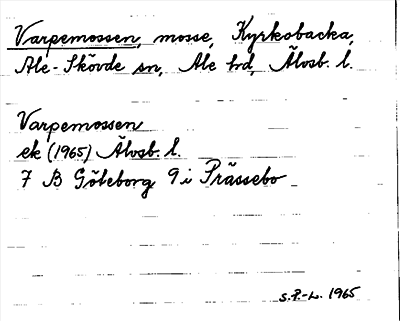 Varpemossen, mosse, Kyrkobacka,
Ale-Skövde sn, Ale hd, Älvsb. l.
Varpemossen
ek (1965) Älvsb. l.
7 B Göteborg 9 i Prässebo
S.P.-L. 1965